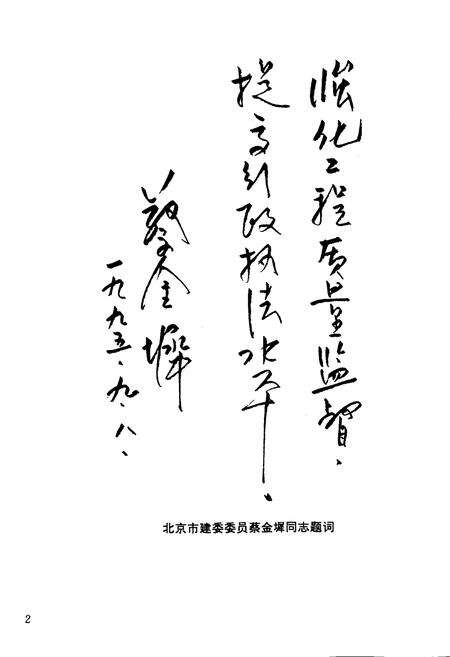 强化工程质量监督.
提高行政执法水平.
蔡金墀
一九九五.九.八.
北京市建委委员蔡金墀同志题词
2